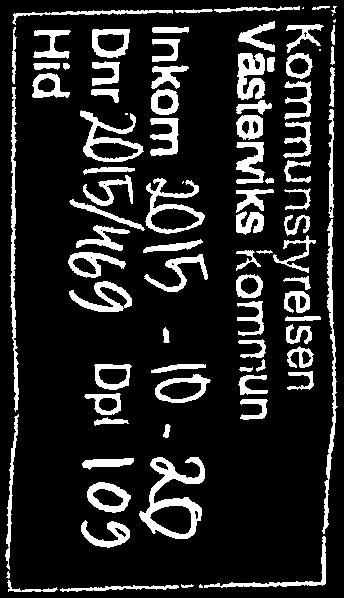 Kommunstyrelsen
Västerviks kommun
Inkom 2015-10-20
Dnr 2015/469 Dpl 109
Hid